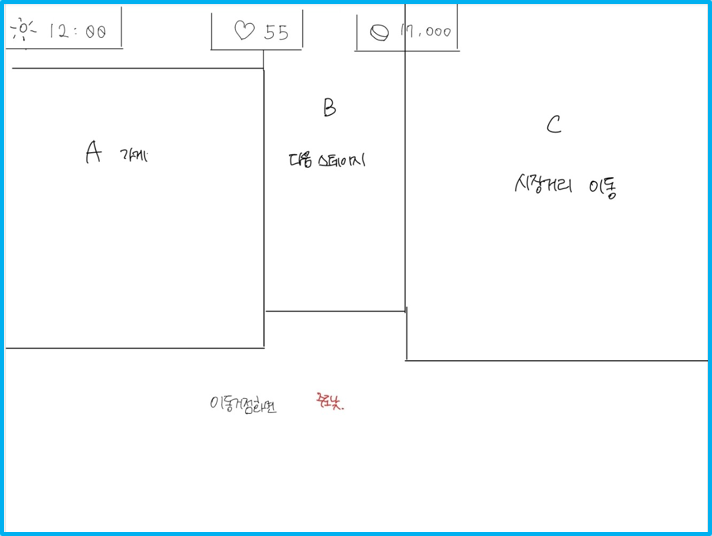 12:00
55
17,000
A 가게
B
다음 스테이지
C
시장거리 이동
이동거점화면